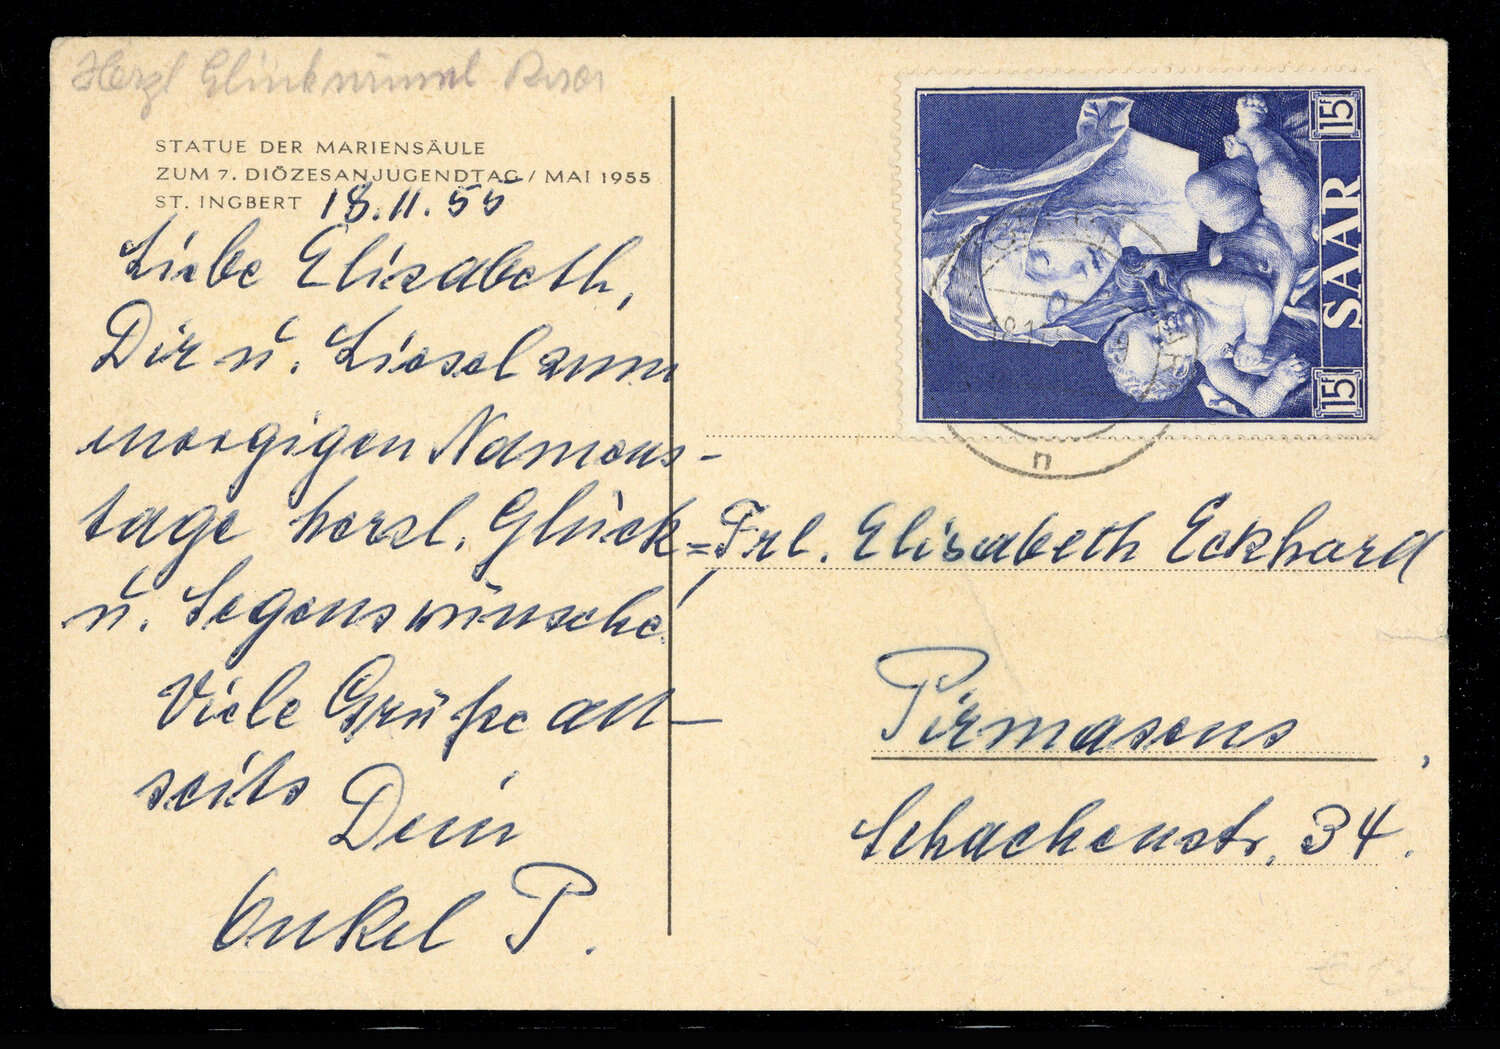 Herzl Glückwunsch
STATUE DER MARIENSÄULE
ZUM 7. DIÖZESANJUGENDTAG / MAI 1955
ST. INGBERT 18.11.55
Liebe Elisabeth,
Dir u. Liesel zum
morgigen Namens-
tage herzl. Glück=
u. Segenswünsche!
Viele Grüße all-
seits
Dein
Onkel P.
15F SAAR 15F
n
Frl. Elisabeth Eckhard
Pirmasens,
Schachenstr. 34.